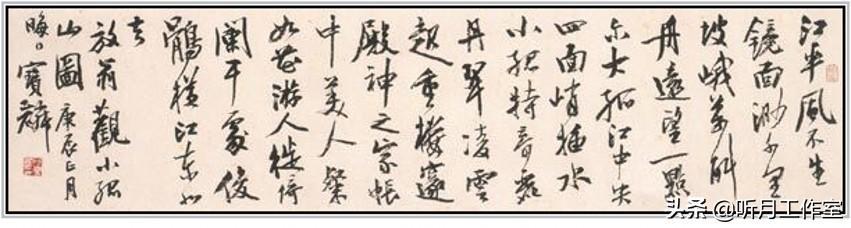 江平風不生
鏡面渺千里
坡峨萬斛
舟遠望一點
尔大孤江中央
四面峭插水
小孤特奇麗
丹翠凌雲
起重樓邃
殿神之家帳
中美人粲
如花游人徙倚
闌干處俊
鶻橫江東北
去
放翁觀小孤
山圖 庚辰正月
晦日 寶
头条 @听月工作室